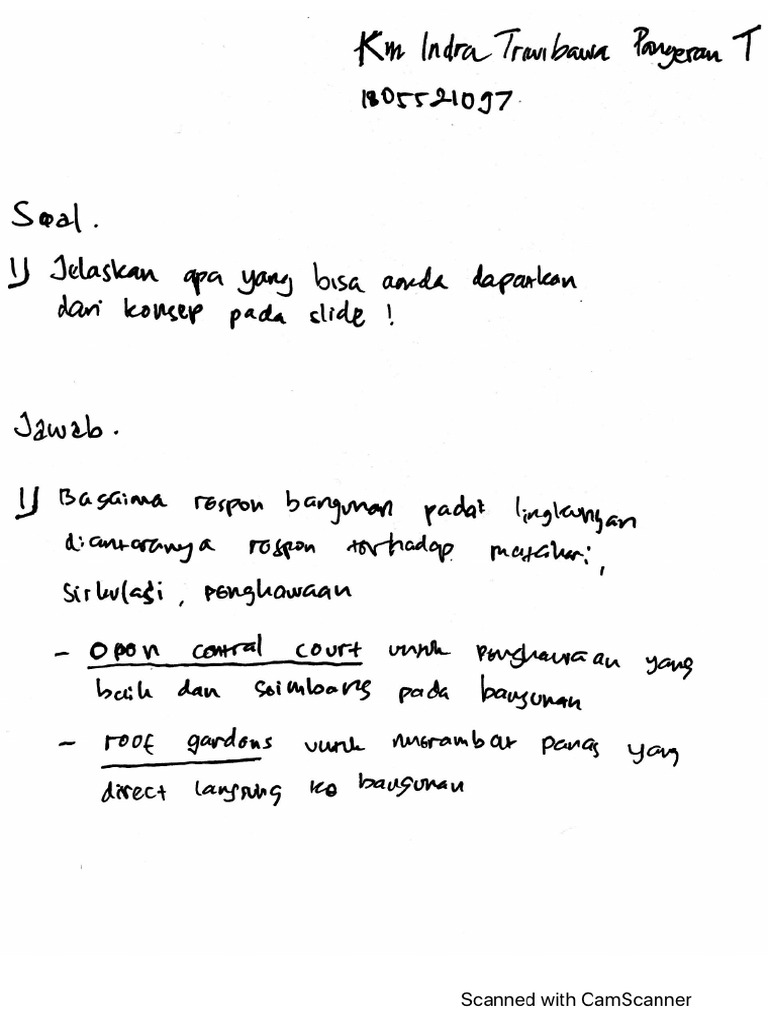 Km Indra Triwibawa Pangeran T
1805521097.
Soal.
1) Jelaskan apa yang bisa anda dapatkan
dari konsep pada slide !
Jawab.
1) Bagaima respon bangunan padat lingkungan
diantaranya respon terhadap matahari,
sirkulasi, penghawaan
- open central court untuk penghawaan yang
baik dan seimbang pada bangunan
- roof gardens untuk merambat panas yang
direct langsung ke bangunan
Scanned with CamScanner